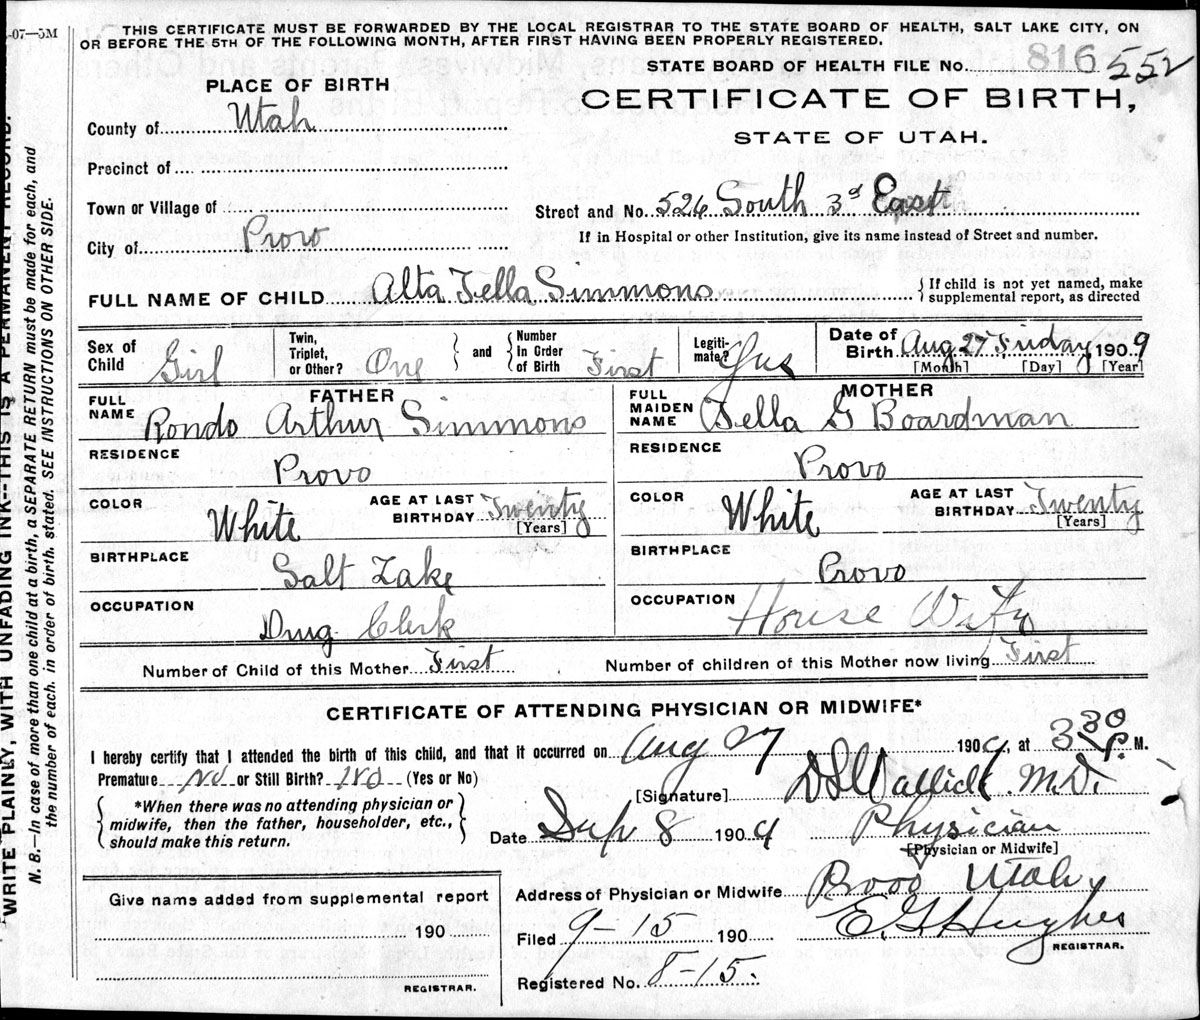 -07—5M
THIS CERTIFICATE MUST BE FORWARDED BY THE LOCAL REGISTRAR TO THE STATE BOARD OF HEALTH, SALT LAKE CITY, ON
OR BEFORE THE 5TH OF THE FOLLOWING MONTH, AFTER FIRST HAVING BEEN PROPERLY REGISTERED.
STATE BOARD OF HEALTH FILE NO. 816 552
PLACE OF BIRTH
CERTIFICATE OF BIRTH,
STATE OF UTAH.
County of Utah
Precinct of
Town or Village of
Street and No. 526 South 3d East
City of Provo
If in Hospital or other Institution, give its name instead of Street and number.
FULL NAME OF CHILD Alta Fella Simmons { If child is not yet named, make
supplemental report, as directed
Sex of Child Girl
Twin, Triplet, or Other? One } and { Number In Order of Birth First
Legiti- mate? Yes
Date of Birth Aug 27 Friday 1909
[Month] [Day] [Year]
FATHER
FULL NAME Rondo Arthur Simmons
MOTHER
FULL MAIDEN NAME Fella G Boardman
RESIDENCE Provo
RESIDENCE Provo
COLOR White AGE AT LAST BIRTHDAY Twenty [Years]
COLOR White AGE AT LAST BIRTHDAY Twenty [Years]
BIRTHPLACE Salt Lake
BIRTHPLACE Provo
OCCUPATION Drug Clerk
OCCUPATION House Wife
Number of Child of this Mother First
Number of children of this Mother now living First
CERTIFICATE OF ATTENDING PHYSICIAN OR MIDWIFE*
I hereby certify that I attended the birth of this child, and that it occurred on Aug 27 1909, at 3 30 P. M.
Premature no or Still Birth? no (Yes or No)
[Signature] M.D.
{ *When there was no attending physician or
midwife, then the father, householder, etc.,
should make this return. }
Date Sep 8 1909 Physician
[Physician or Midwife]
Address of Physician or Midwife Provo Utah
Give name added from supplemental report
190
REGISTRAR.
Filed 9-15 190 E G Hughes
REGISTRAR.
Registered No. 8-15.
WRITE PLAINLY, WITH UNFADING INK--THIS IS A PERMANENT RECORD.
N. B.—In case of more than one child at a birth, a SEPARATE RETURN must be made for each, and
the number of each, in order of birth, stated. SEE INSTRUCTIONS ON OTHER SIDE.